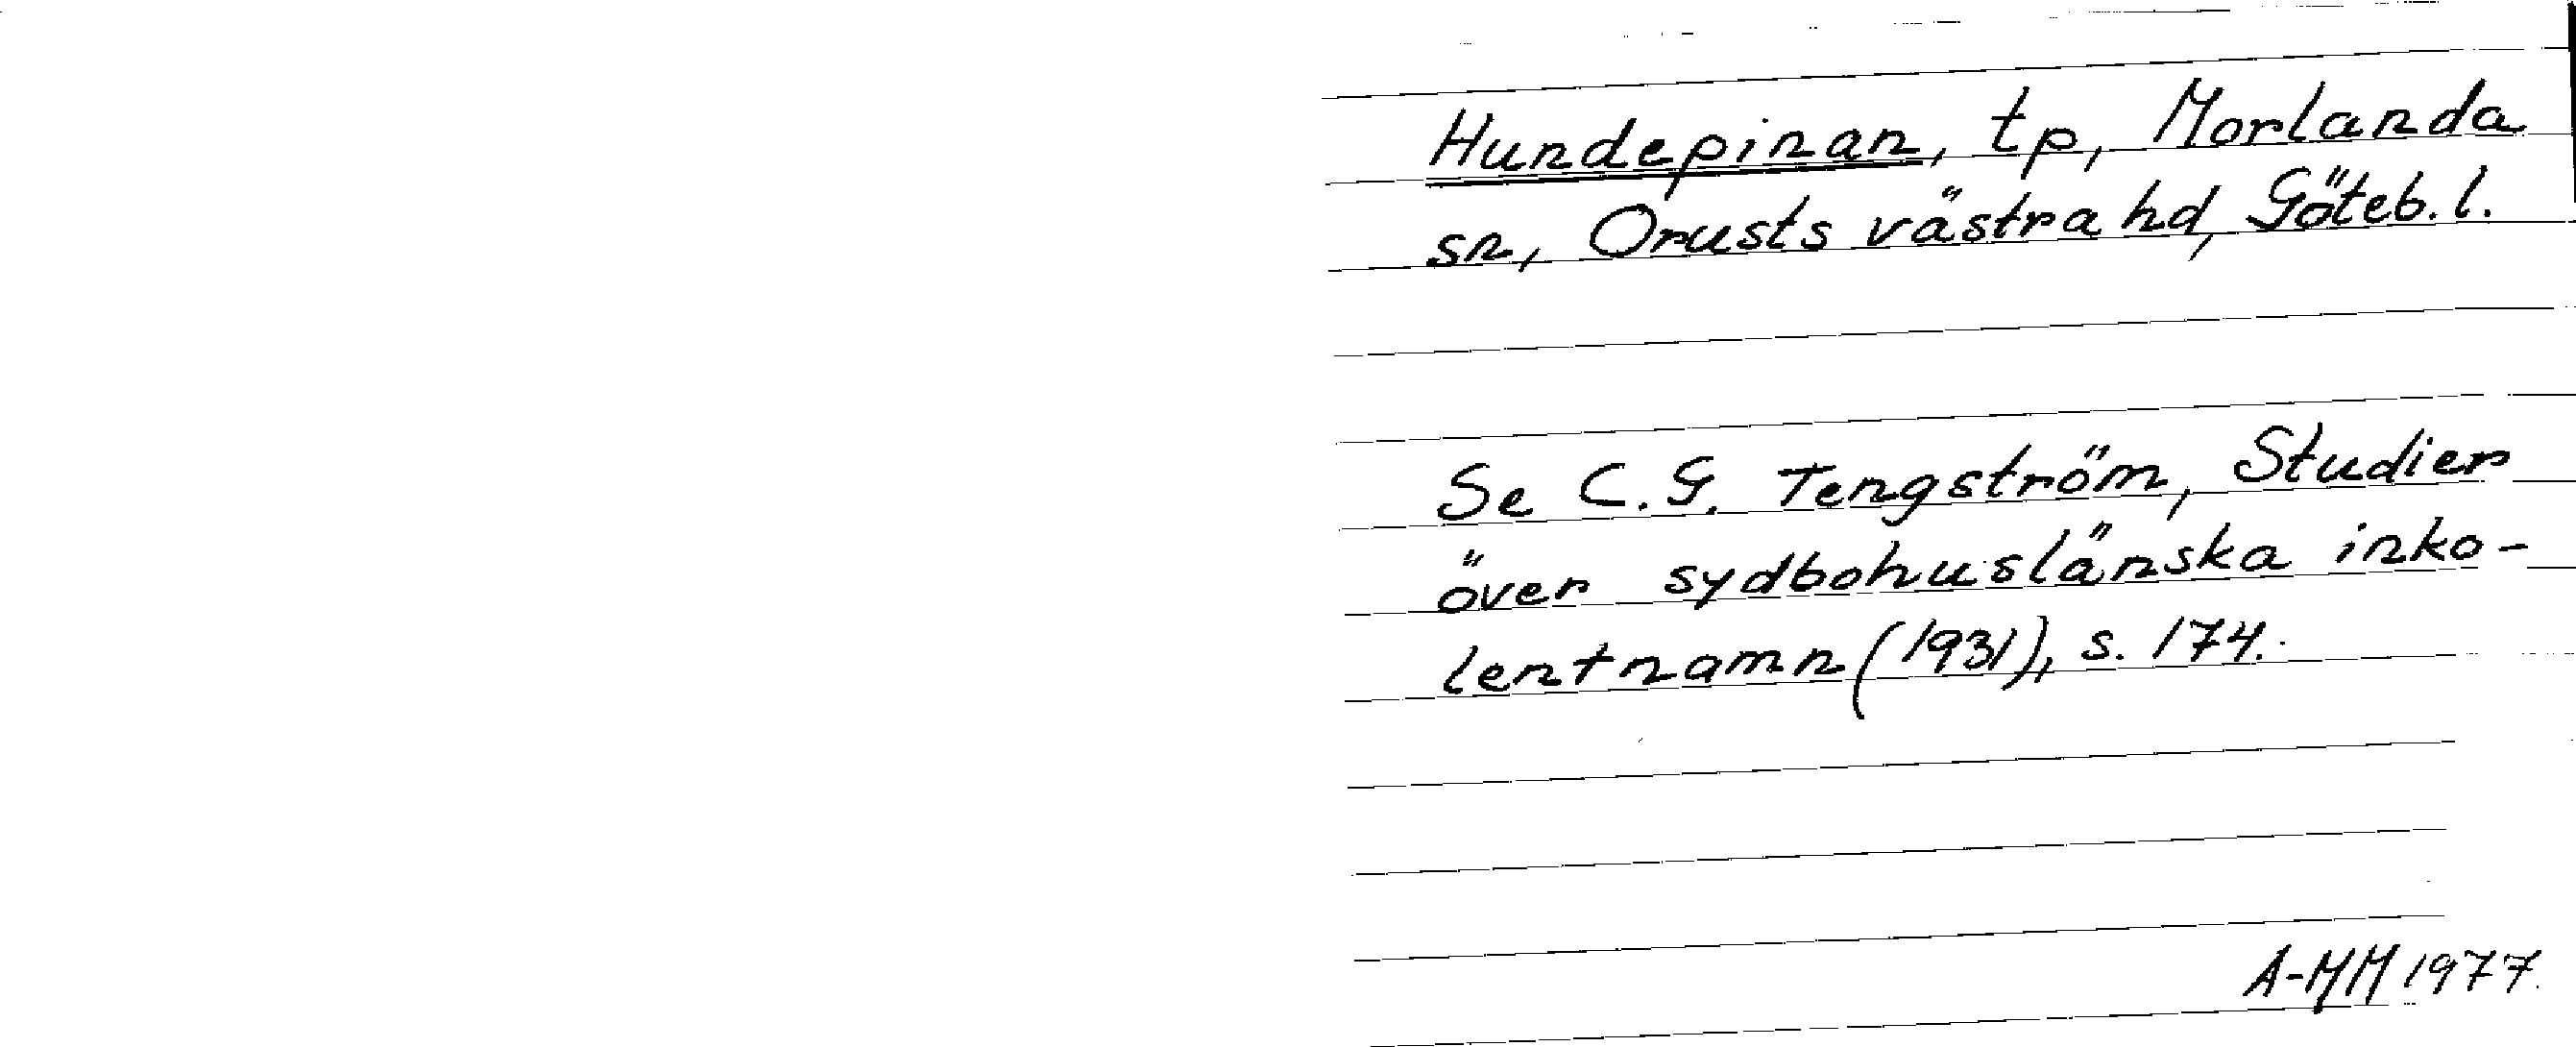 Hundepinan, tp, Morlanda
sn, Orusts västra hd, Göteb. l.
Se C. G. Tengström, Studier
över sydbohuslänska inko-
lentnamn (1931), s. 174.
A-MM 1977